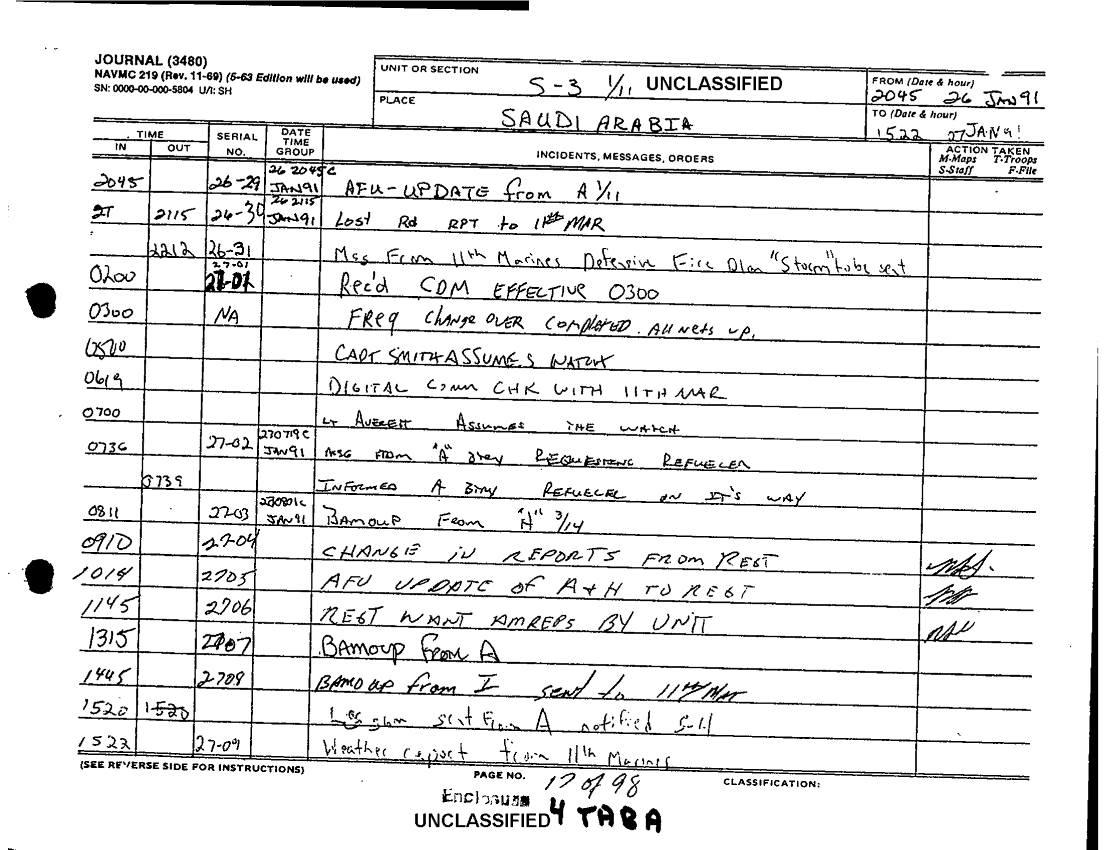 JOURNAL (3480)
NAVMC 219 (Rev. 11-69) (5-63 Edition will be used)
SN: 0000-00-000-5804 U/I: SH
UNIT OR SECTION
S-3 1/11 UNCLASSIFIED
PLACE
SAUDI ARABIA
FROM (Date & hour)
2045 26 JAN 91
TO (Date & hour)
1522 27 JAN 91
TIME
IN OUT SERIAL NO. DATE TIME GROUP INCIDENTS, MESSAGES, ORDERS ACTION TAKEN
M-Maps T-Troops
S-Staff F-File
2045 26-29 26 2045C JAN91 AFU-UPDATE from A 1/11
2115 26-30 26 2115 JAN91 Lost Rd RPT to 11th MAR
2212 26-31 Msg From 11th Marines Defensive Fire Plan "Storm" to be sent
0200 27-01 27-01 Rec'd CDM EFFECTIVE 0300
0300 NA FREQ CHANGE OVER COMPLETED. All nets up.
0500 CAPT SMITH ASSUMES WATCH
0619 DIGITAL Comm CHK WITH 11TH MAR
0700 LT AVERETT ASSUMES THE WATCH
0736 27-02 270719C JAN91 MSG FROM "A" Btry REQUESTING REFUELER
0739 INFORMED A Btry REFUELER ON IT'S WAY
0811 27-03 270801C JAN91 BAMOUP From "H" 3/14
0910 27-04 CHANGE IN REPORTS FROM REGT
1014 2705 AFU UPDATE OF A+H TO REGT
1145 2706 REGT WANT AMREPS BY UNIT
1315 2707 BAMOUP From A
1445 2708 BAMOUP from I sent to 11th Mar
1520 1520 sent From A notified S-4
1522 27-09 Weather report from 11th Marines
(SEE REVERSE SIDE FOR INSTRUCTIONS)
PAGE NO. 17 of 98
CLASSIFICATION:
Enclosure
UNCLASSIFIED 4 TAB A